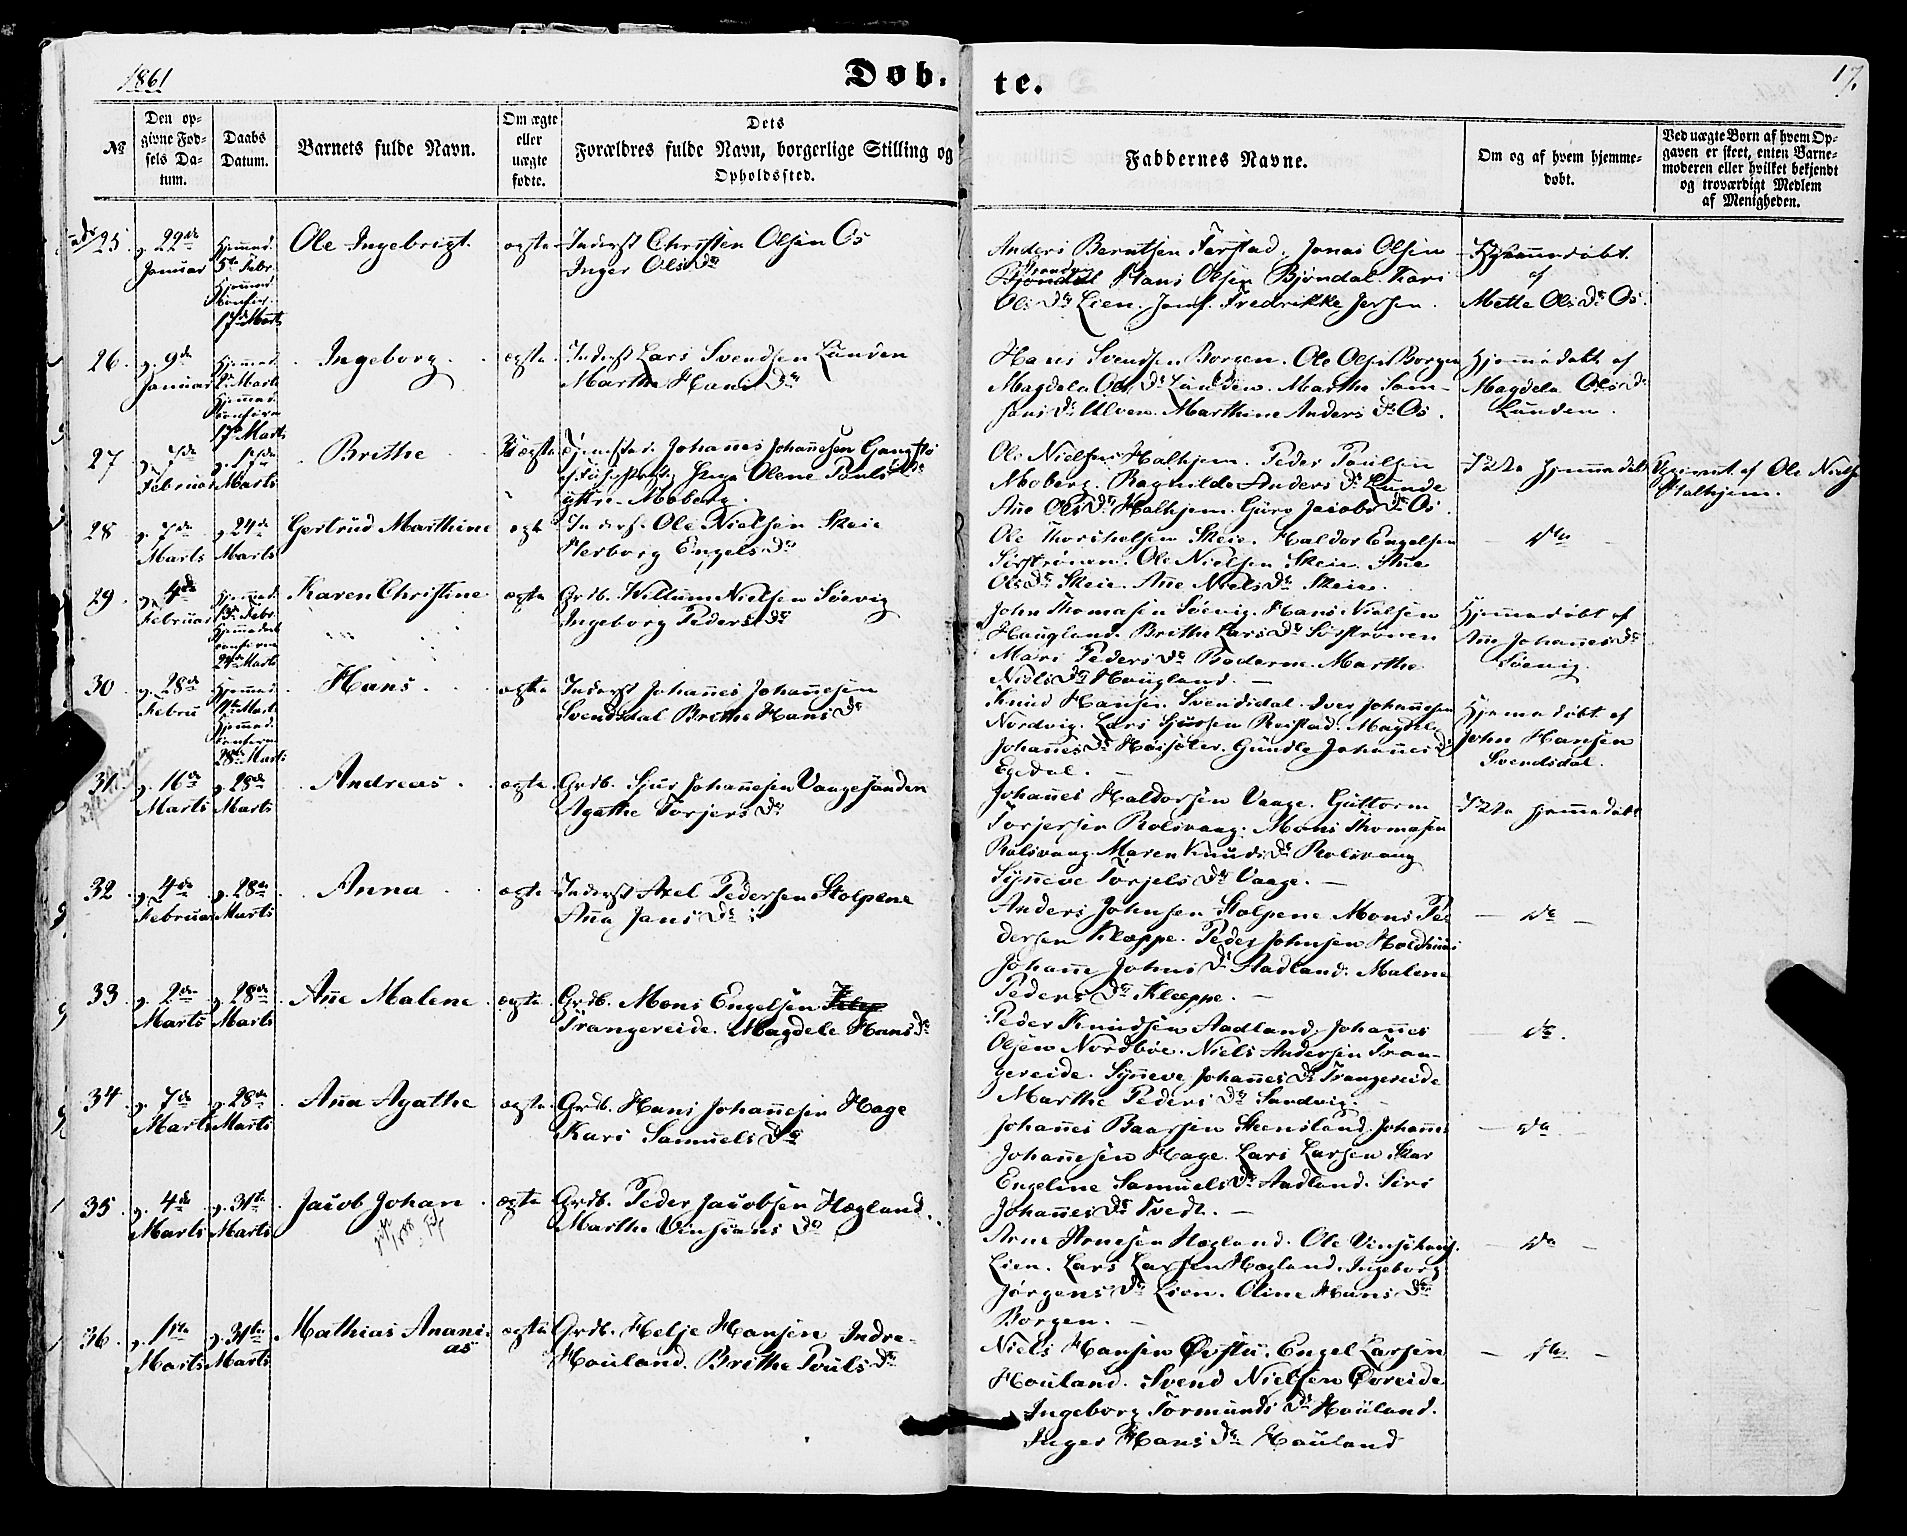 1861
Døb- te.
17.
№
Den opgivne Fødsels Datum.
Daabs Datum.
Barnets fulde Navn.
Om ægte eller uægte fødte.
Dets Forældres fulde Navn, borgerlige Stilling og Opholdssted.
Faddernes Navne.
Om og af hvem hjemmedøbt.
Ved uægte Børn af hvem Opgaven er skeet, enten Barnemoderen eller hvilket bekjendt og troværdigt Medlem af Menigheden.
25. d. 22de Januar
Hjemmed. 5te Febr. Hjemmed. Konfir. 17de Marts
Ole Ingebrigt
ægte
Inderst Christen Olsen Os
Inger Olsdr
Anders Berntsen Færstad. Jonas Olsen
Hans Olsen Bjøndal. Kari
Olsdr Lien. Jomf. Fredrikke Jersin.
Hjemmedøbt
af
Mette Olsdr Os.
26. d. 9de Januar
Hjemmed. Marts Hjemmed. konfirm 17de Marts
Ingeborg
ægte
Inderst Lars Svendsen Lunden
Marthe Hansdr
Hans Svendsen Borgen. Ole Olsen Borgen
Magdela Olsdr Lunden. Marthe Sam-
sonsdr Ulven. Marthine Andersdr Os.
Hjemmedøbt af
Magdela Olsdr
Lunden.
27 d. 7de Februar
d. 17de Marts
Brithe
uægte
Johannes Johannesen
Pige Olene Poulsdr
yttre Moberg.
Ole Nielsen Halhjem. Peder Poulsen
Moberg. Ragnilde Andersdr Lunde
Ane Olsdr Halhjem. Guro Jacobsdr Os.
Ikke hjemmedøbt
Opgivet af Ole Nielsen
Halhjem.
28. d. 7de Marts
d. 24de Marts
Gertrud Marthine
ægte
Inderst Ole Nielsen Skeie
Herborg Engelsdr
Ole Thorstelsen Skeie. Haldor Engelsen
Sørstrønen. Ole Nielsen Skeie. Ane
Olsdr Skeie. Ane Nielsdr Skeie.
— do —
29. d. 4de Februar
Hjemmed. Febr. Hjemmedaab konfirm 24de Marts
Karen Christine
ægte
Grdb. Willum Nielsen Søevig
Ingeborg Pedersdr
John Thomasen Søevig. Hans Nielsen
Haugland. Brithe Larsdr Sørstrønen
Mari Pedersdr Marthe
Nielsdr Haugland. —
Hjemmedøbt af
Ane Johannesdr
Søevig.
30 d. 28de Febru
Hjemmed. Marts Hjemmed. konfirm 28de Marts
Hans
ægte
Inderst Johannes Johannesen
Svendsdal Brithe Hansdr
Knud Hansen Svendsdal. Iver Johannesen
Nordvig. Lars Sjursen Reistad. Magdele
Johannesdr Gundle Johannesdr
Egdal. —
Hjemmedøbt af
John Hansen
Svendsdal.
31. d. 16de Marts
d. 28de Marts
Andreas
ægte
Grdb. Sjur Johannesen Vaagesanden
Agathe Torjersdr
Johannes Haldorsen Vaage. Guttorm
Torjersen Rolsvaag. Mons Thomasen
Rolsvaag Maren Knudsdr Rolsvaag
Synneve Torjelsdr Vaage. —
Ikke hjemmedøbt
32. d. 4de Februar
d. 28de Marts
Anna
ægte
Inderst Axel Pedersen Stolpene
Ana Jansdr
Anders Johnsen Stolpene Mons Pe-
dersen Kleppe. Peder Johnsen Holdhuus
Johanne Johnsdr Aadland. Malene
Pedersdr Kleppe. —
— do —
33. d. 2den Marts
d. 28de Marts
Ane Malene
ægte
Grdb. Mons Engelsen
Trangereide. Magdele Hansdr
Peder Knudsen Aadland. Johannes
Olsen Nordbøe. Niels Andersen Tran-
gereide. Synneve Johannesdr Trangereide
Marthe Pedersdr Sandvig. —
— do.
34 d. 7de Marts
d. 28de Marts
Ana Agathe
ægte
Grdb. Hans Johannesen Hage
Kari Samuelsdr
Johannes Baarsen Skeisland. Johannes
Johannesen Hage. Lars Larsen Skar
Engeline Samuelsdr Aadland. Siri
Johannesdr Tvedt. —
— do —
35. d. 4de Marts
d. 31te Marts
Jacob Johan
ægte
Grdb. Peder Jacobsen Hegland.
Marthe Vinsjansdr
Arne Arnesen Hegland. Ole Vinsjansen
Lien. Lars Larsen Hegland. Ingeborg
Jørgensdr Lien. Oline Hansdr
Borgen. —
— do —
36. d. 1ste Marts
d. 31te Marts
Mathias Anani-
as
ægte
Grdb. Helje Hansen Indre-
Hauland. Brithe Poulsdr
Niels Hansen Engel Larsen
Hauland. Svend Nielsen Øvreide
Ingeborg Tormundsdr Hauland.
Inger Hansdr Hauland
— do —